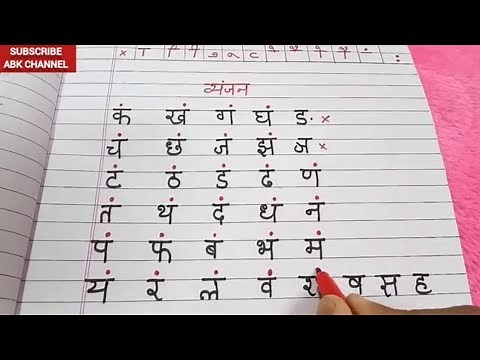 SUBSCRIBE
ABK CHANNEL
व्यंजन
कं खं गं घं ङ ×
चं छं जं झं ञ ×
टं ठं डं ढं णं
तं थं दं धं नं
पं फं बं भं मं
यं रं लं वं श ष स ह